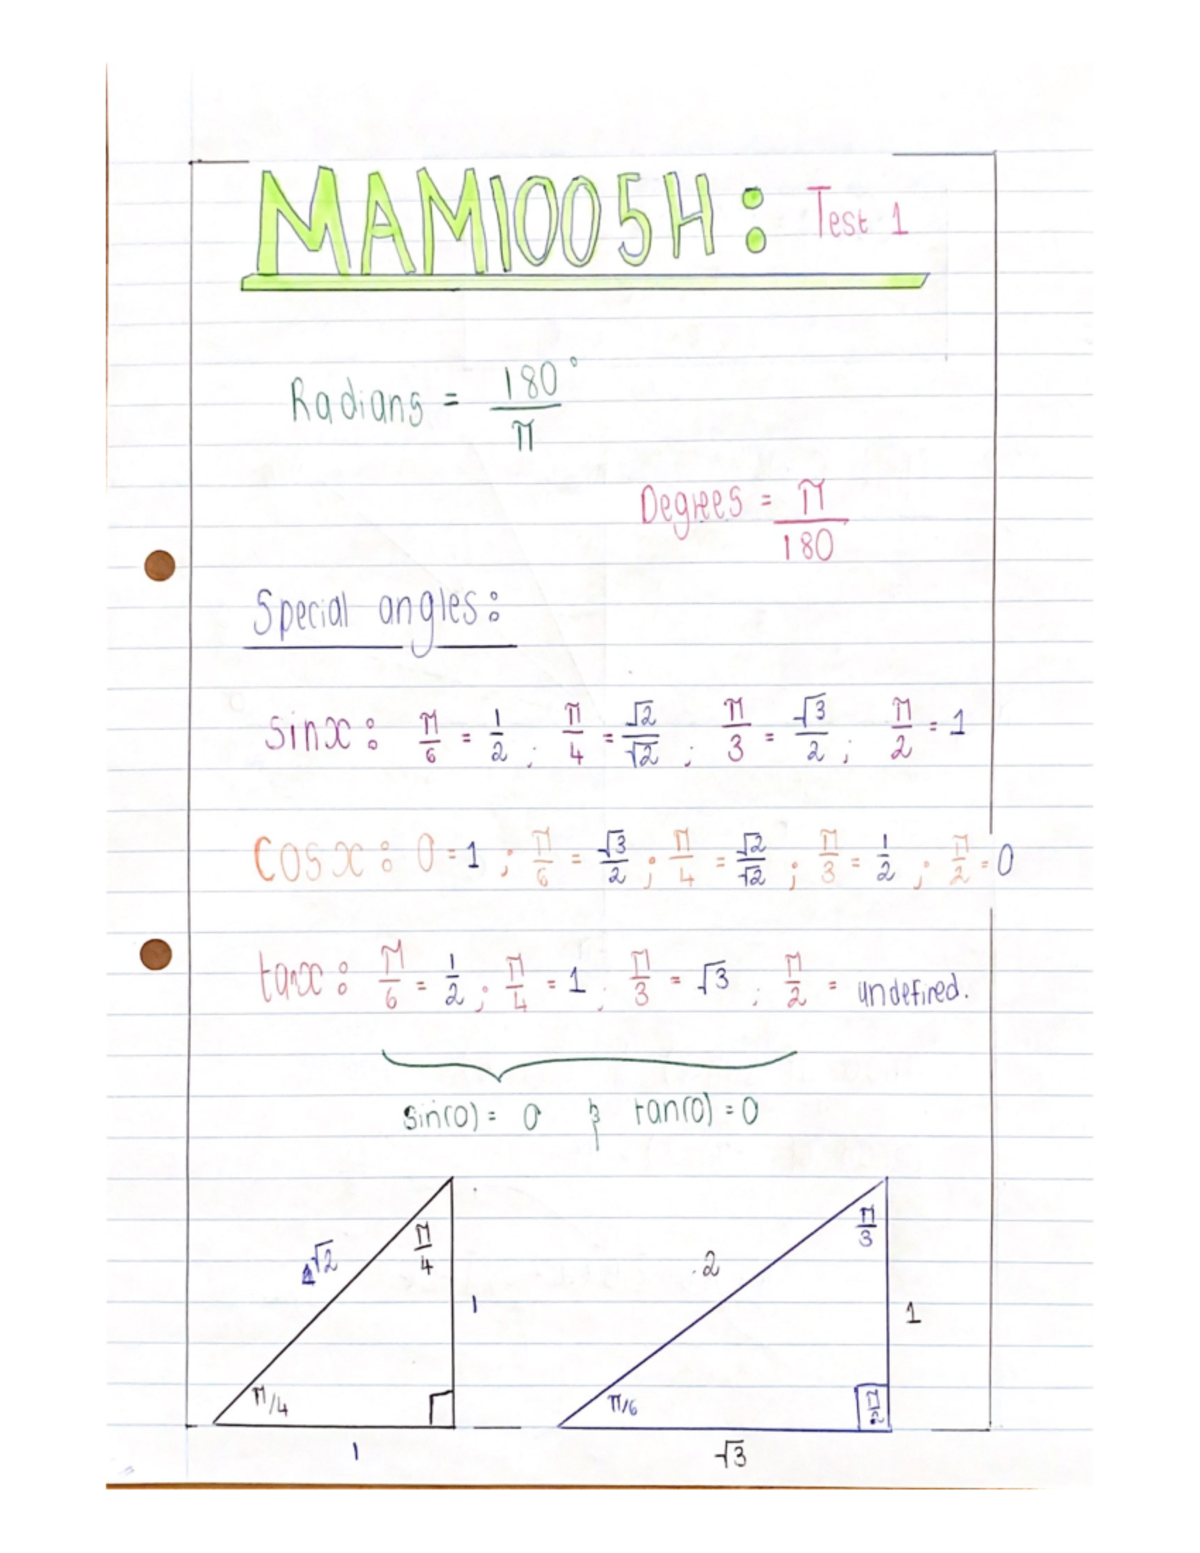 MAM1005H: Test 1
Radians = 180° / π
Degrees = π / 180
Special angles:
sinx: π/6 = 1/2 ; π/4 = √2/√2 ; π/3 = √3/2 ; π/2 = 1
cosx: 0 = 1 ; π/6 = √3/2 ; π/4 = √2/√2 ; π/3 = 1/2 ; π/2 = 0
tanx: π/6 = 1/2 ; π/4 = 1 ; π/3 = √3 ; π/2 = undefined.
sin(0) = 0 & tan(0) = 0
√2 π/4 1 π/4 1
2 π/3 1 π/6 π/2 √3